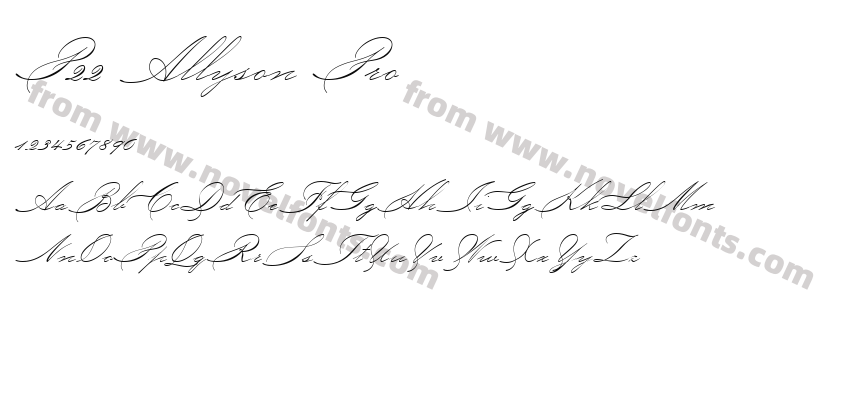 P22 Allyson Pro
1234567890
AaBbCcDdEeFfGgHhIiGgKkLlMm
NnOoPpQqRrSsTtUuVvWwXxYyZz
from www.novelfonts.com
from www.novelfonts.com